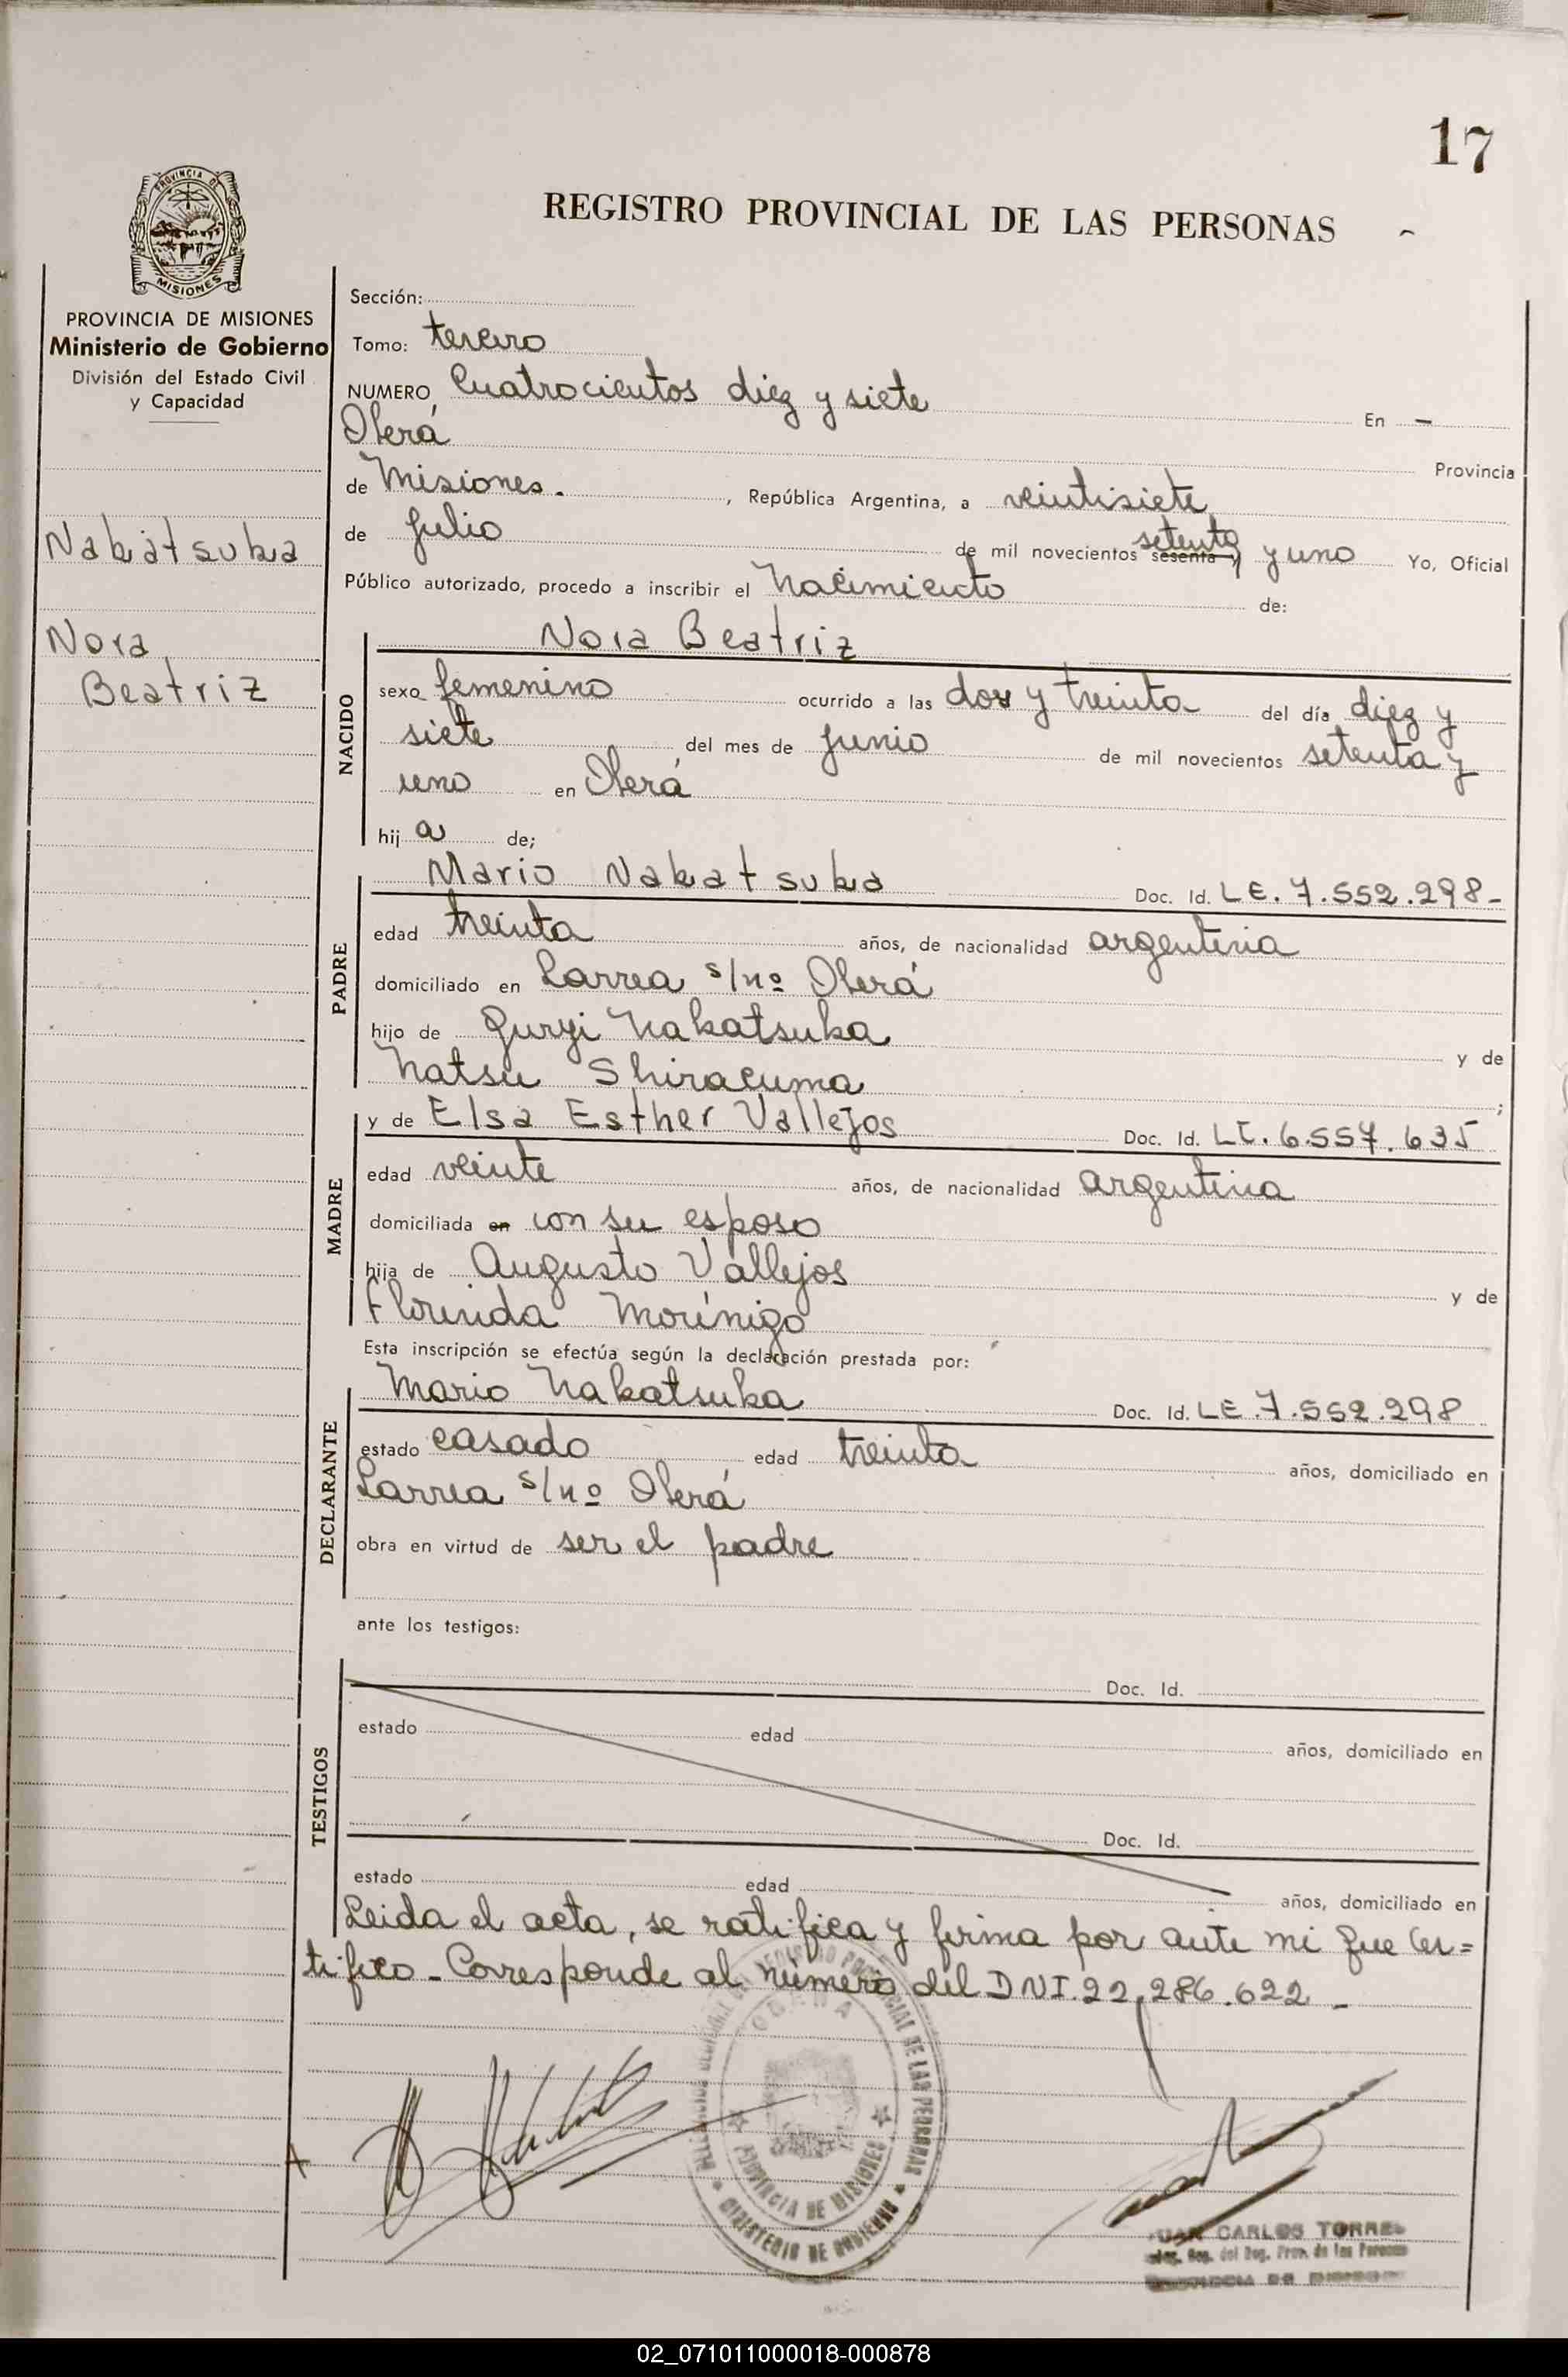 17
PROVINCIA DE
MISIONES
REGISTRO PROVINCIAL DE LAS PERSONAS
PROVINCIA DE MISIONES
Ministerio de Gobierno
División del Estado Civil
y Capacidad
Nakatsuka
Nora
Beatriz
Sección:
Tomo: tercero
NUMERO Cuatrocientos diez y siete En -
Oberá Provincia
de Misiones. , República Argentina, a veintisiete
de Julio de mil novecientos sesenta y setenta y uno Yo, Oficial
Público autorizado, procedo a inscribir el Nacimiento de:
NACIDO
Nora Beatriz
sexo femenino ocurrido a las dos y treinta del día diez y
siete del mes de Junio de mil novecientos setenta y
uno en Oberá
hij a de;
PADRE
Mario Nakatsuka Doc. Id. LE. 7.552.298-
edad treinta años, de nacionalidad argentina
domiciliado en Larrea s/nº Oberá
hijo de Junji Nakatsuka y de
Natsu Shiracuma ;
MADRE
y de Elsa Esther Vallejos Doc. Id. LC. 6.557.635
edad veinte años, de nacionalidad argentina
domiciliada en con su esposo
hija de Augusto Vallejos y de
Florinda Morínigo
Esta inscripción se efectúa según la declaración prestada por:
DECLARANTE
Mario Nakatsuka Doc. Id. LE. 7.552.298
estado casado edad treinta años, domiciliado en
Larrea s/nº Oberá
obra en virtud de ser el padre
ante los testigos:
TESTIGOS
Doc. Id.
estado edad años, domiciliado en
Doc. Id.
estado edad años, domiciliado en
Leida el acta, se ratifica y firma por ante mi que Cer=
tifico - Corresponde al número del DNI. 22.286.622 -
REGISTRO PROVINCIAL DE LAS PERSONAS
PROVINCIA DE MISIONES
MINISTERIO DE GOBIERNO
JUAN CARLOS TORRES
del Reg. Prov. de las Personas
02_071011000018-000878